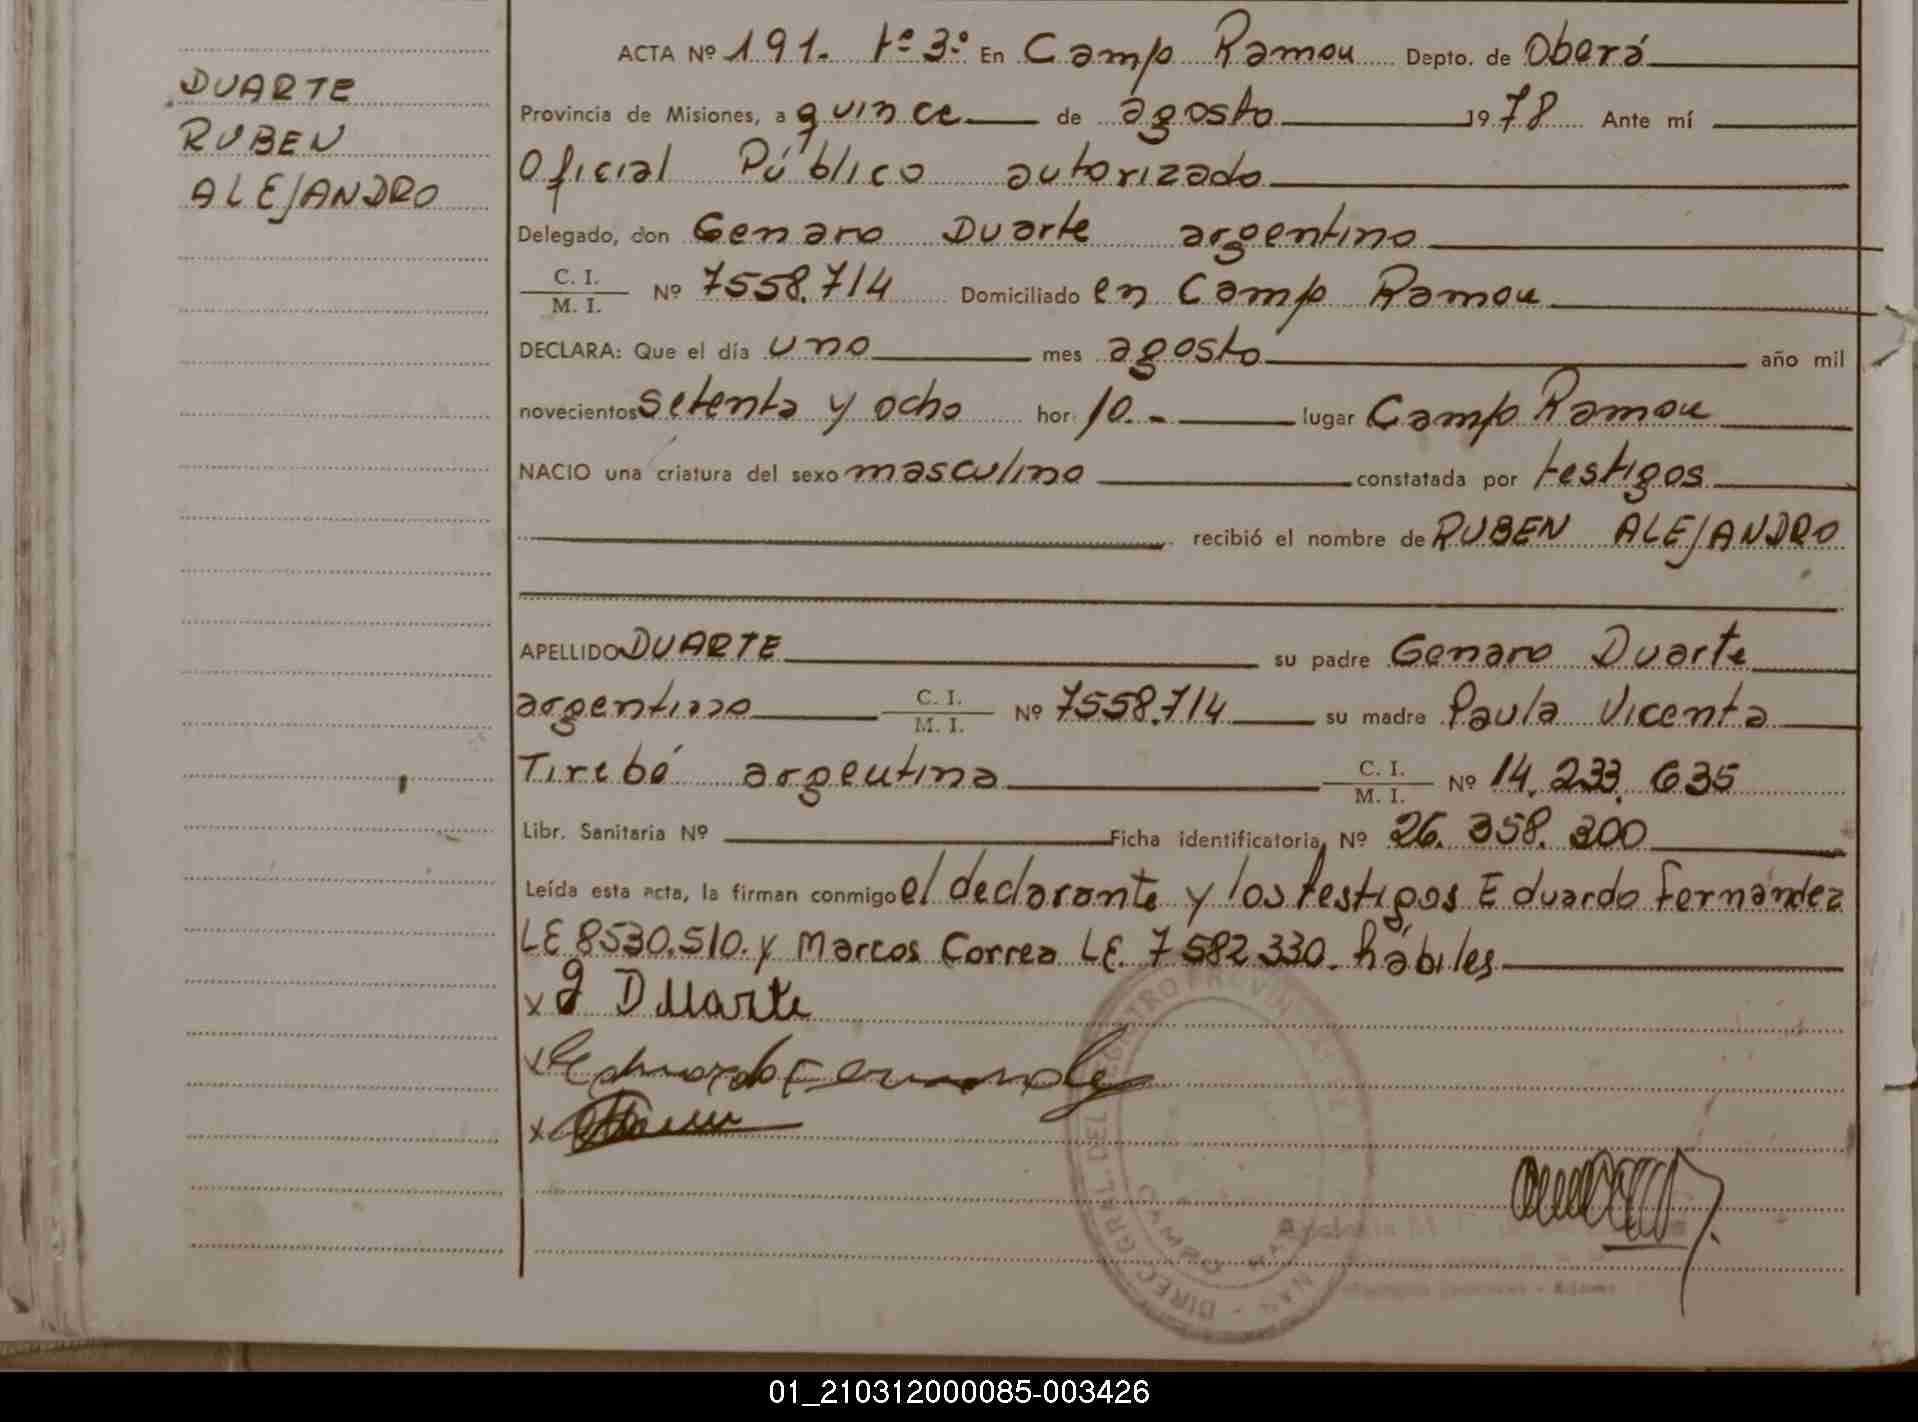 DUARTE
RUBEN
ALEJANDRO
ACTA Nº 191. tº 3º En Camp Ramou Depto. de Oberá
Provincia de Misiones, a quince de agosto 1978 Ante mí
Oficial Público autorizado
Delegado, don Genaro Duarte argentino
C. I.
M. I. Nº 7558.714 Domiciliado en Camp Ramou
DECLARA: Que el día uno mes agosto año mil
novecientos setenta y ocho hor 10.- lugar Camp Ramou
NACIO una criatura del sexo masculino constatada por testigos
recibió el nombre de RUBEN ALEJANDRO
APELLIDO DUARTE su padre Genaro Duarte
argentino C. I.
M. I. Nº 7558.714 su madre Paula Vicenta
Tirebé argentina C. I.
M. I. Nº 14.233.635
Libr. Sanitaria Nº Ficha identificatoria Nº 26.358.300
Leída esta acta, la firman conmigo el declarante y los testigos Eduardo Fernández
LE 8530.510. y Marcos Correa LE. 7582.330. hábiles
x g Duarte
x Eduardo Fernandez
x
DIREC. GRAL. DEL
01_210312000085-003426